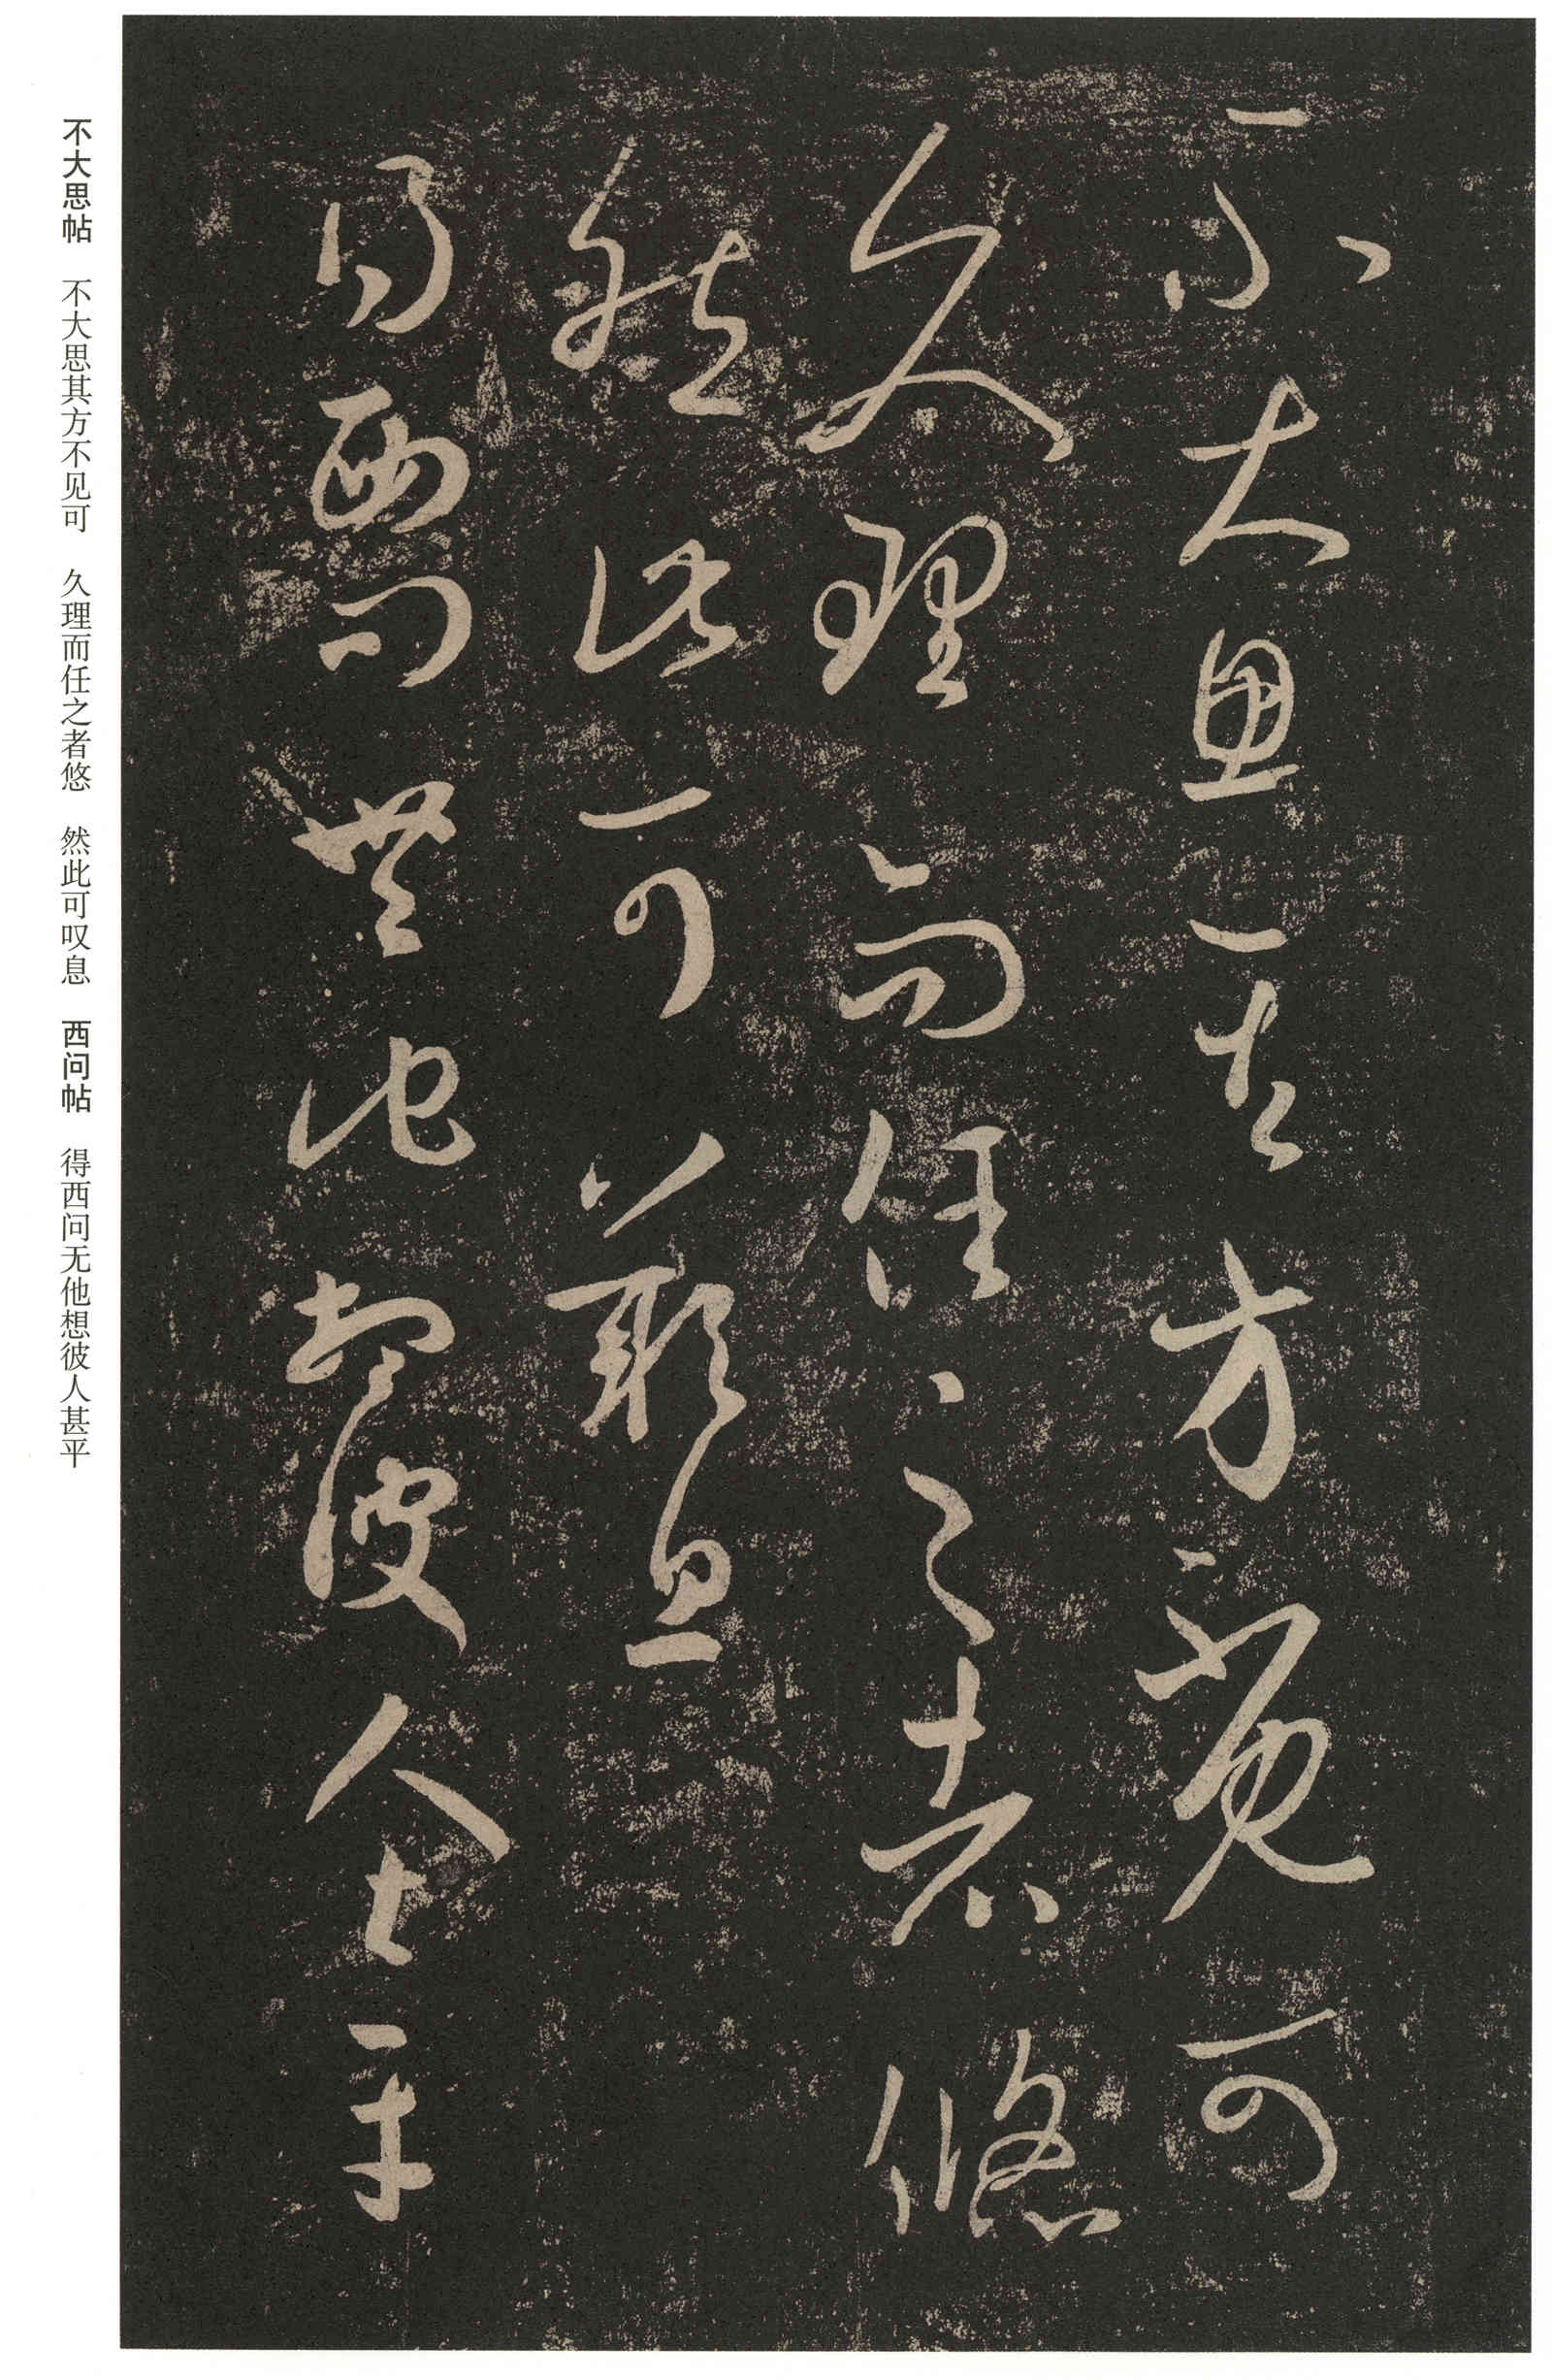 不大思其方不見可
久理而任之者悠
然此可歎息
得西問無他想彼人甚平
不大思帖 不大思其方不见可 久理而任之者悠 然此可叹息 西问帖 得西问无他想彼人甚平